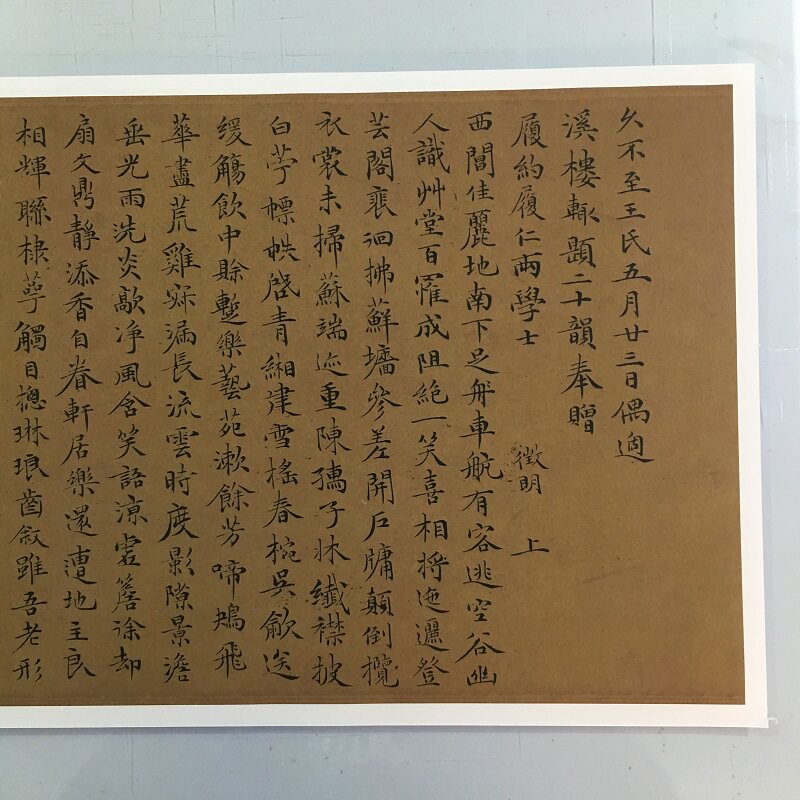 久不至王氏五月廿三日偶過
溪樓輒題二十韻奉贈
履約履仁兩學士
徵明 上
西閶佳麗地南下足舟車航有客逃空谷幽
人識艸堂百罹成阻絕一笑喜相將迤邐登
芸閣裵洄拂蘚墻參差開戶牖顛倒攬
衣裳未掃蘇端迹重陳孺子牀纖襟披
白苧幖帙啓青緗津雪搖春椀吳歈送
緩觴飲中賒蹔樂藝苑漱餘芳啼鴂飛
華盡荒雞寐漏長流雲時度影隙景澹
垂光雨洗炎歊净風含笑語涼宏簷涂却
扇文鼎靜添香自眷軒居樂還遭地主良
相輝聯棣萼觸目揔琳琅齒敘雖吾老形